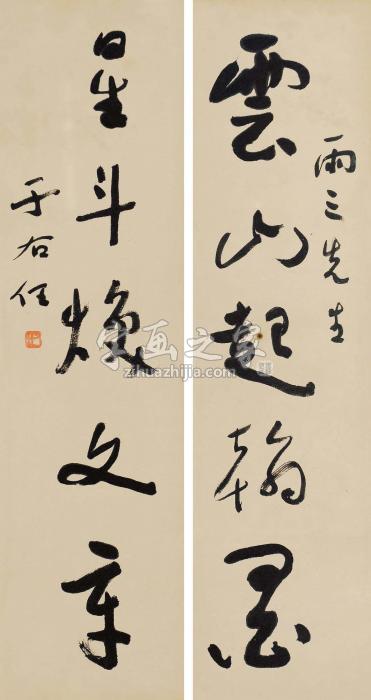 雨三先生
雲山起翰墨
星斗煥文章
于右任
字画之家
zihuazhijia.com